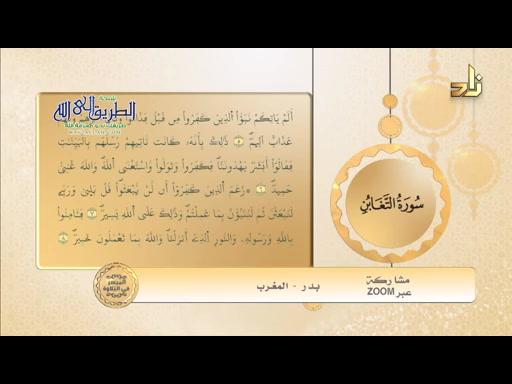 زاد
شبكة
الطريق إلى الله
أَلَمْ يَاتِكُمْ نَبَؤُاْ اُلذِينَ كَفَرُواْ مِن قَبْلُ
عَذَابٌ اَلِيمٌ ٥ ذَٰلِكَ بِأَنَّهُۥ كَانَت تَّاتِيهِمْ رُسُلُهُم بِالْبَيِّنَٰتِ
فَقَالُوٓاْ أَبَشَرٌ يَهْدُونَنَا فَكَفَرُواْ وَتَوَلَّواْ وَّاسْتَغْنَى اَللَّهُ وَاللَّهُ غَنِيٌّ
حَمِيدٌ ٦ زَعَمَ اَلذِينَ كَفَرُوٓاْ أَن لَّنْ يُّبْعَثُواْ قُلْ بَلَىٰ وَرَبِّي
لَتُبْعَثُنَّ ثُمَّ لَتُنَبَّؤُنَّ بِمَا عَمِلْتُمْ وَذَٰلِكَ عَلَى اَللَّهِ يَسِيرٌ ٧ فَـَٔامِنُواْ
بِاللَّهِ وَرَسُولِهِۦ وَالنُّورِ اِلذِےٓ أَنزَلْنَا وَاللَّهُ بِمَا تَعْمَلُونَ خَبِيرٌ ٨
سُورَةُ التَّغَابُنِ
مشاركة
عبر ZOOM
بدر - المغرب
الميسر
في التلاوة